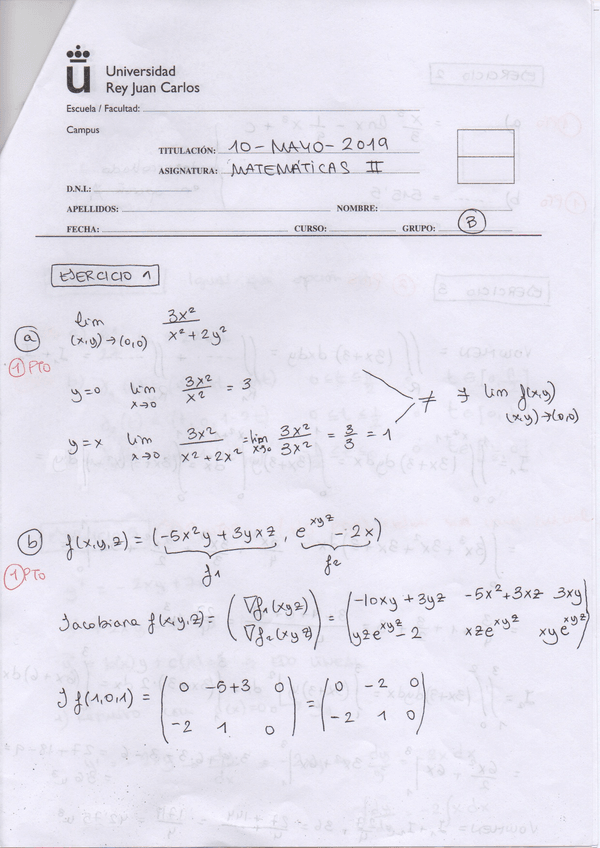 Universidad
Rey Juan Carlos
Escuela / Facultad:
Campus
TITULACIÓN: 10-MAYO-2019
ASIGNATURA: MATEMÁTICAS II
D.N.I.:
APELLIDOS: NOMBRE:
FECHA: CURSO: GRUPO: B
EJERCICIO 1
a) lim (x,y)→(0,0) 3x²/(x²+2y²)
1 PTO
y=0 lim x→0 3x²/x² = 3
≠ ∄ lim f(x,y) (x,y)→(0,0)
y=x lim x→0 3x²/(x²+2x²) = lim x→0 3x²/3x² = 3/3 = 1
b) f(x,y,z) = (-5x²y + 3yxz, e^xyz - 2x)
f1 f2
1 PTO
Jacobiana f(x,y,z) = (∇f1(xyz) ∇f2(xyz)) = (-10xy+3yz -5x²+3xz 3xy
yze^xyz-2 xze^xyz xye^xyz)
J f(1,0,1) = (0 -5+3 0 = (0 -2 0
-2 1 0) -2 1 0)